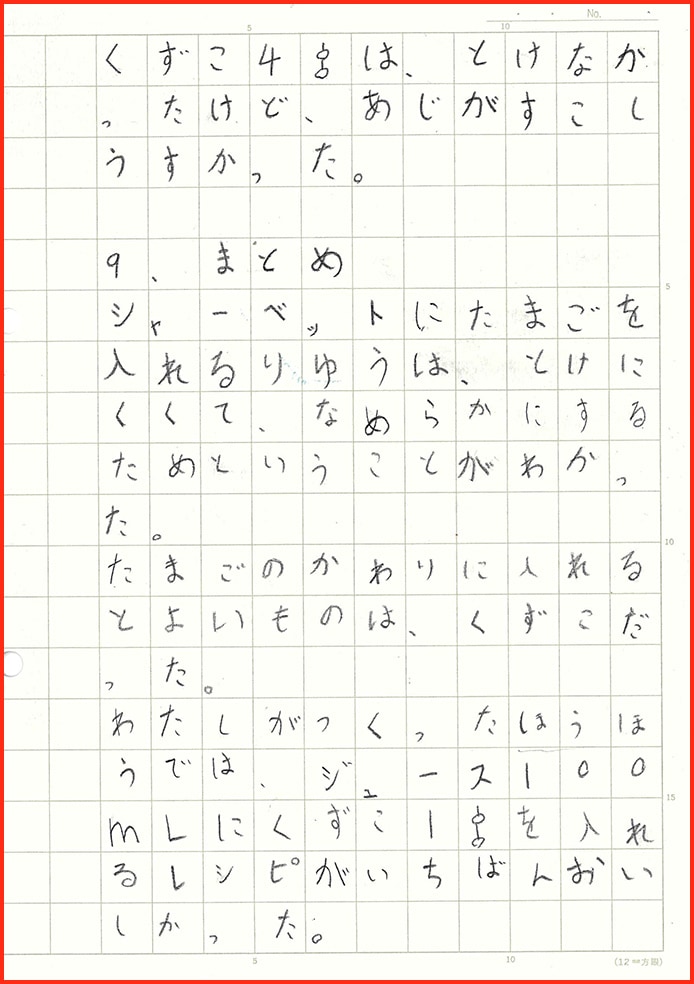 No.
5
10
くずこ4号は、とけなか
ったけど、あじがすこし
うすかった。
9、まとめ
シャーベットにたまごを
入れるりゆうは、とけに
くくて、なめらかにする
ためということがわかっ
た。
たまごのかわりに入れる
とよいものは、くずこだ
った。
わたしがつくったほうほ
うでは、ジュース100
mLにくずこ1号を入れ
るレシピがいちばんおい
しかった。
5
10
15
5
10
(12㎜方眼)